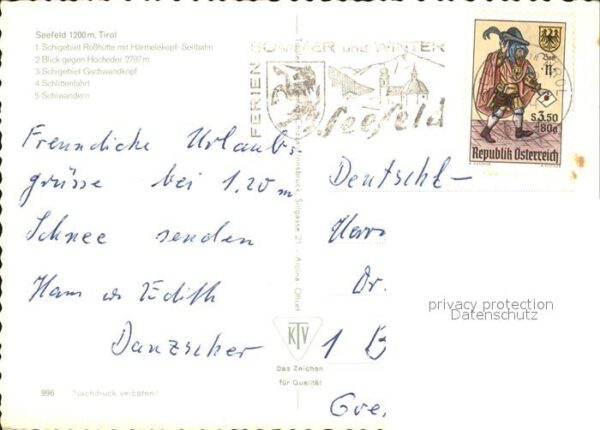 Seefeld 1200 m, Tirol
1 Schigebiet Roßhütte mit Härmelekopf-Seilbahn
2 Blick gegen Hocheder 2797 m
3 Schigebiet Gschwandkopf
4 Schlittenfahrt
5 Schiwandern
FERIEN
SOMMER und WINTER
Seefeld
s 3.50
+80g
Republik Österreich
Freundliche Urlaubs
grüsse bei 1.20 m
Schnee senden
Hans u Edith
Danzscher
Deutschl-
Herrn
Dr.
1 B
Gre.
privacy protection
Datenschutz
Innsbruck, Sillgasse 21 - Alpine Offset
KTV
Das Zeichen
für Qualität
996 Nachdruck verboten!